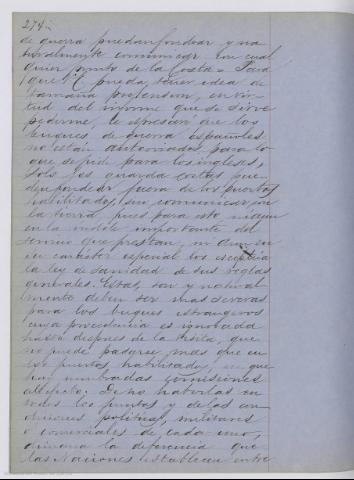 274
de guerra puedan fondear y na
turalmente comunicar con cual
quier punto de la Costa. Para
que V.E. pueda tener idea de
tamaña pretension, en vir
tud del informe que se sirve
pedirme, le espresaré que los
buques de guerra españoles
no están autorizados para lo
que se pide para los ingleses,
solo los guarda costas pue
den fondear fuera de los puertos
habilitados, sin comunicar con
la tierra, pues para esto ni aun
en la indole importante del
servicio que prestan, ni aun en
su carácter especial los esceptúa
la ley de sanidad de sus reglas
generales. Estas, son y natural
mente deben ser mas severas
para los buques estrangeros
cuya procedencia es ignorada
hasta despues de la visita, que
no puede pasarse mas que en
los puertos habilitados, en que
hay nombradas comisiones
al efecto. De no haberlas en
todos los puntos y de las con
diciones políticas, militares
o comerciales de cada uno,
dimana la diferencia que
las Naciones establecen entre